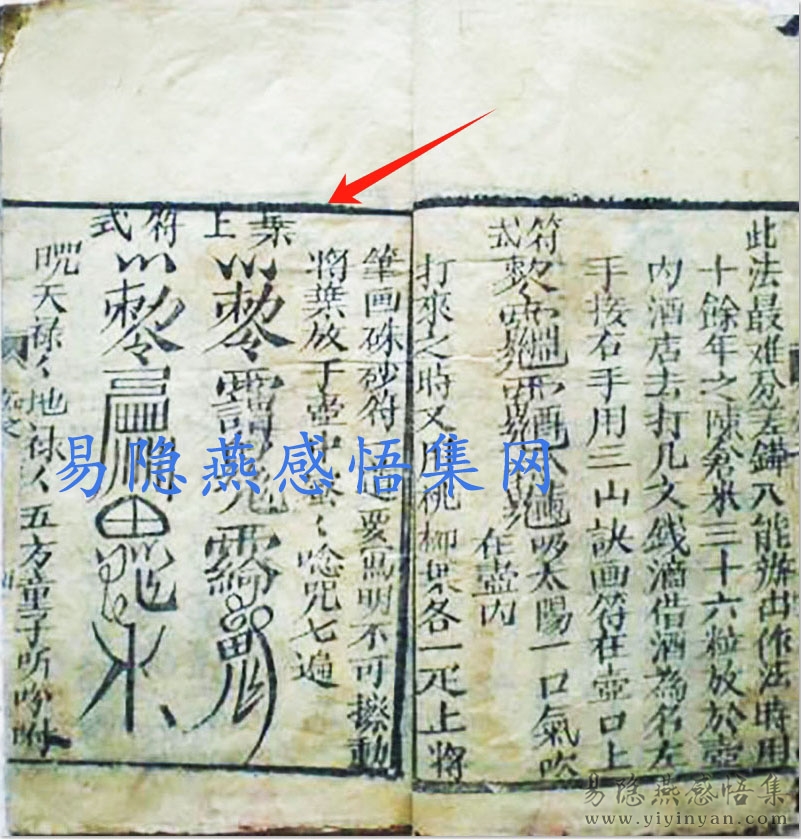 此法最难分差錯八能辦出作法時用
十餘年之陳倉米三十六粒放於壺
内酒店去打几文錢滴借酒為名左
手接右手用三山訣画符在壺口上
符式
吸太陽一口氣吹
在壺内
打來之時又用桃柳果各一疋上將
筆画硃砂符一道要寫明不可擦動
将葉放于壺中念咒七遍
葉上符式
咒天禄〻地禄〻五方童子听吩咐
易隐燕感悟集网
易隐燕感悟集
www.yiyinyan.com